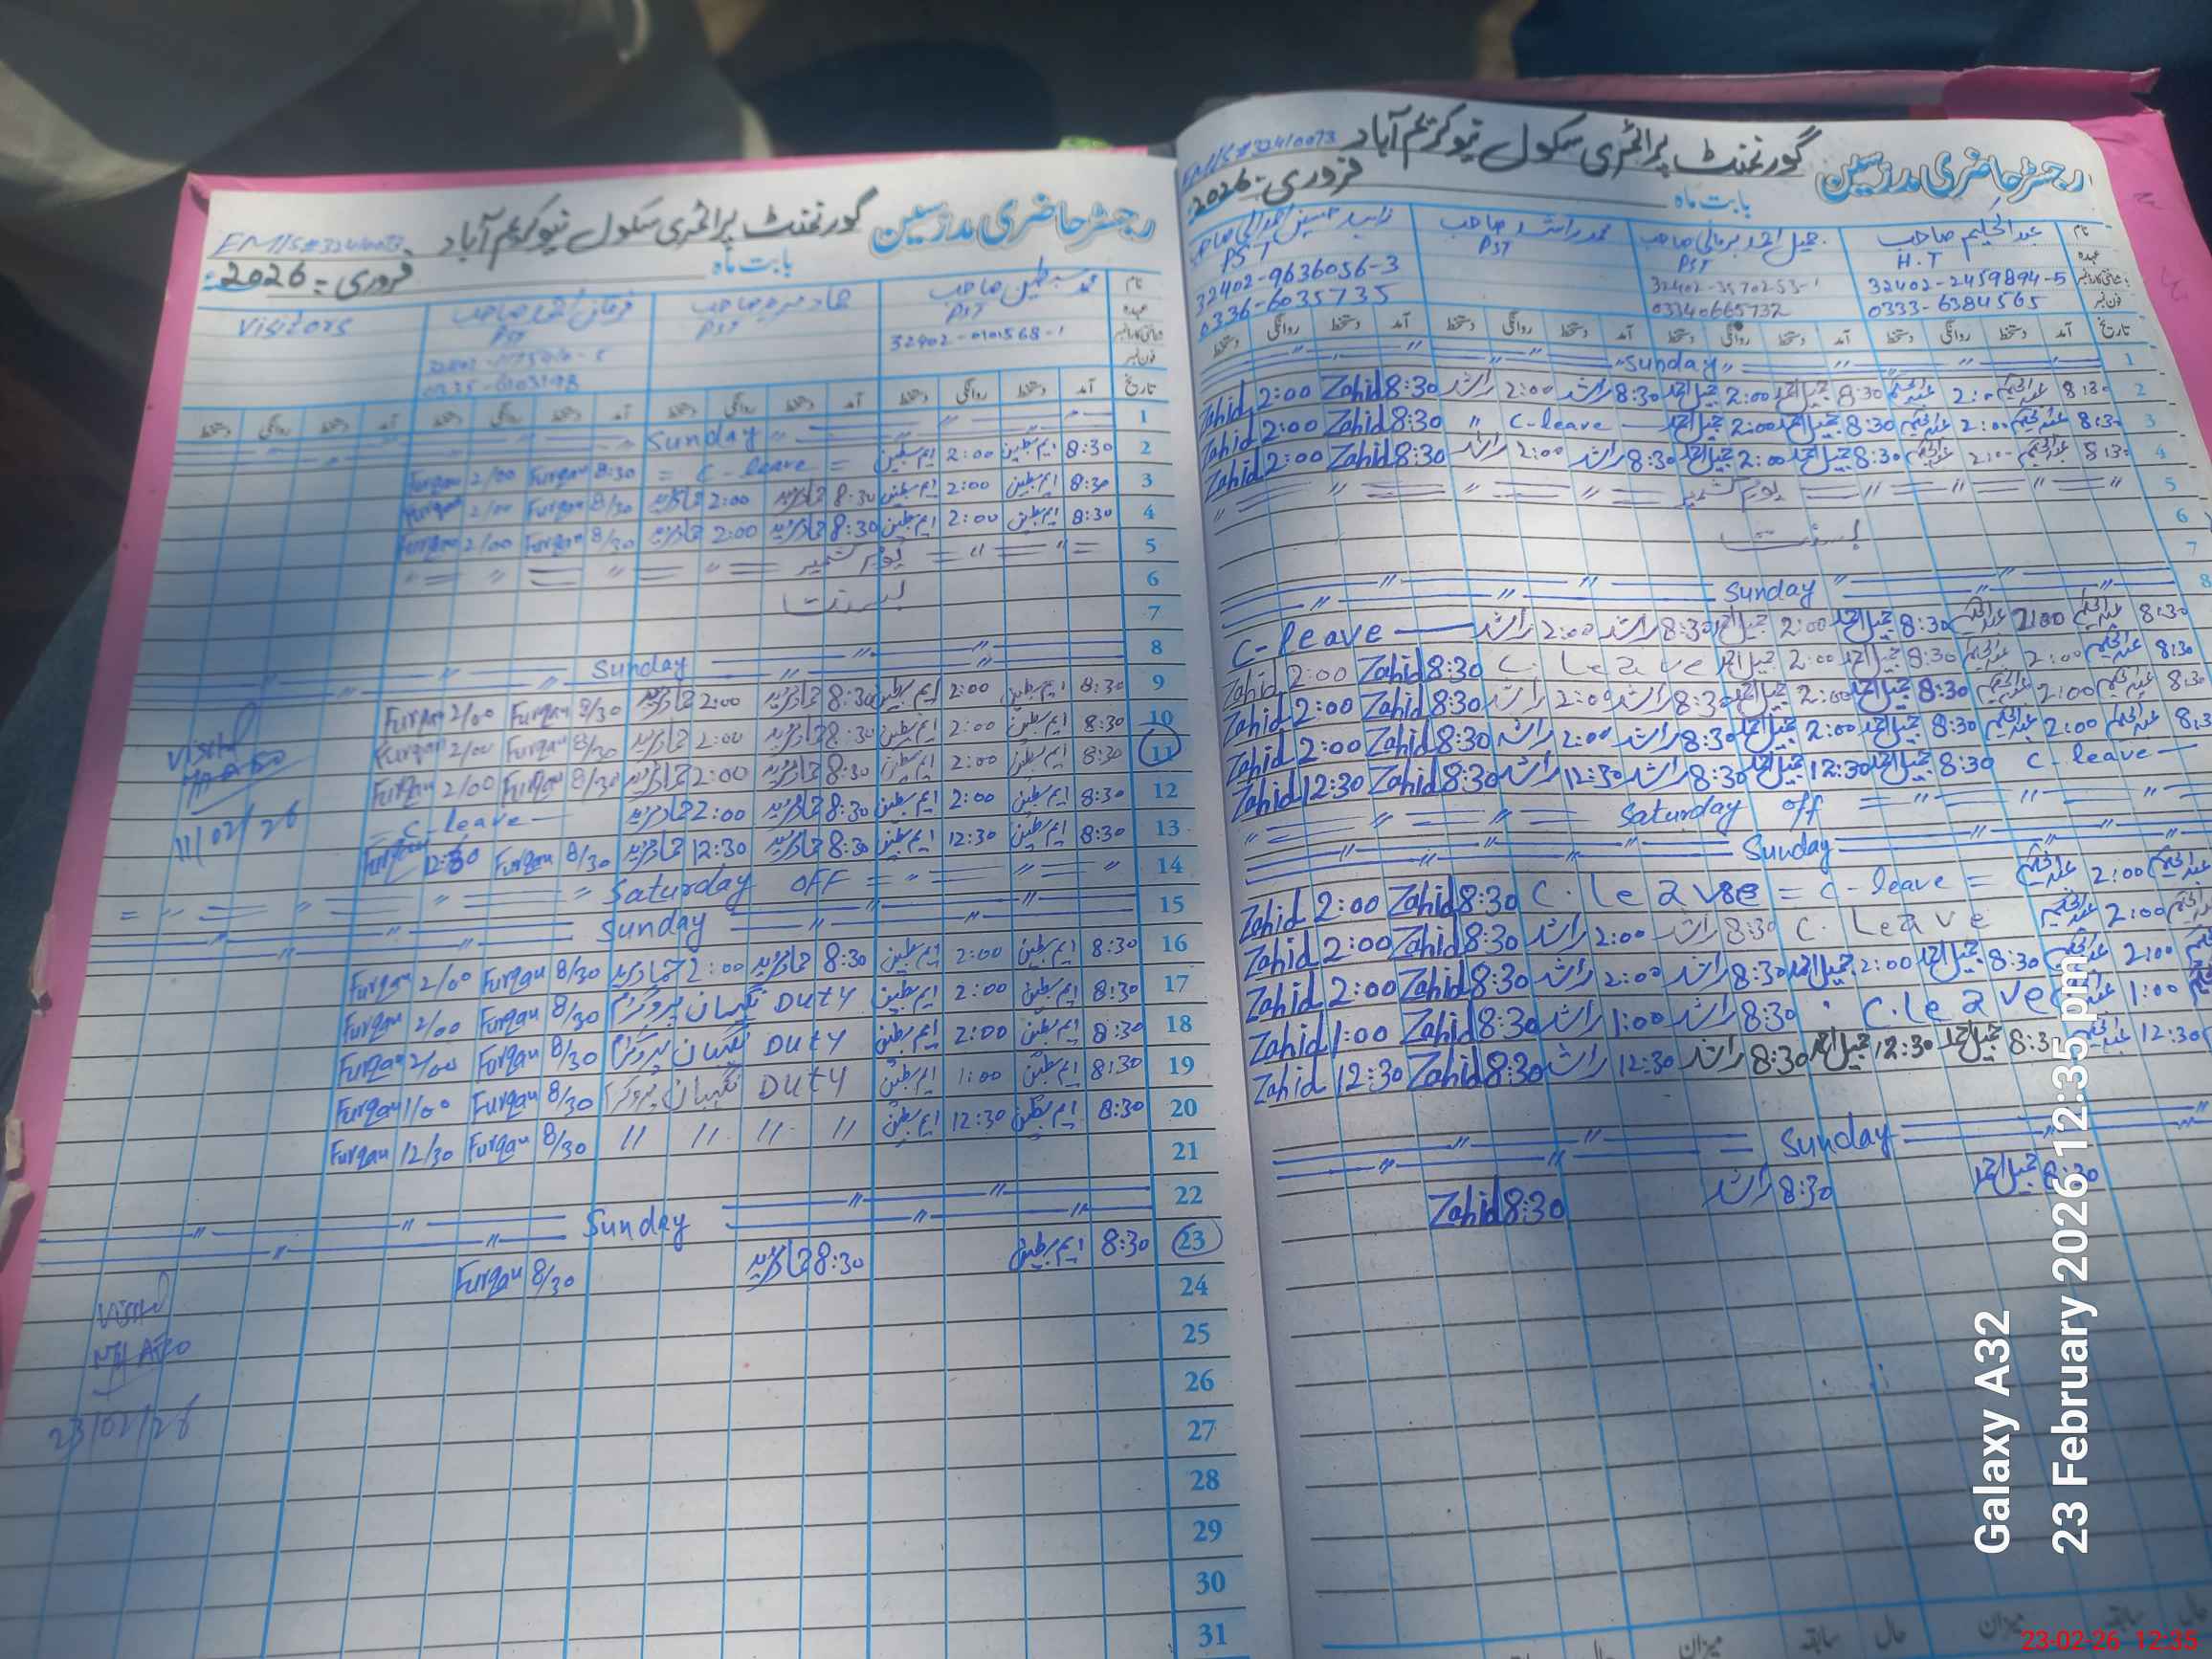 رجسٹر حاضری مدرسین گورنمنٹ پرائمری سکول نیو کریم آباد EMIS#32410073
بابت ماہ فروری 2026ء
نام عبدالحلیم صاحب جمیل احمد برمانی صاحب محمد راشد صاحب زاہد حسین
عہدہ H.T PST PST PST
شناختی کارڈ نمبر 32402-2459894-5 32402-9636056-3
فون نمبر 0333-6384565 03340665732 0336-6035735
تاریخ آمد دستخط روانگی دستخط آمد دستخط روانگی دستخط آمد دستخط روانگی دستخط
1 Sunday
2 8:30 عبدالحلیم 2:00 عبدالحلیم 8:30 جمیل احمد 2:00 جمیل احمد 8:30 راشد 2:00 راشد 8:30 Zahid 2:00 Zahid
3 8:30 عبدالحلیم 2:00 عبدالحلیم 8:30 جمیل احمد 2:00 جمیل احمد C-leave 8:30 Zahid 2:00 Zahid
4 8:30 عبدالحلیم 2:00 عبدالحلیم 8:30 جمیل احمد 2:00 جمیل احمد 8:30 راشد 2:00 راشد 8:30 Zahid 2:00 Zahid
5 یوم کشمیر
6 بسنت
7
8 Sunday
8:30 عبدالحلیم 2:00 عبدالحلیم 8:30 جمیل احمد 2:00 جمیل احمد 8:30 راشد 2:00 راشد C-leave
8:30 عبدالحلیم 2:00 عبدالحلیم 8:30 جمیل احمد 2:00 جمیل احمد C. Leave 8:30 Zahid 2:00 Zahid
8:30 عبدالحلیم 2:00 عبدالحلیم 8:30 جمیل احمد 2:00 جمیل احمد 8:30 راشد 2:00 راشد 8:30 Zahid 2:00 Zahid
عبدالحلیم 2:00 عبدالحلیم 8:30 جمیل احمد 2:00 جمیل احمد 8:30 راشد 2:00 راشد 8:30 Zahid 2:00 Zahid
C-leave 8:30 جمیل احمد 12:30 جمیل احمد 8:30 راشد 12:30 راشد 8:30 Zahid 12:30 Zahid
Saturday off
Sunday
عبدالحلیم 2:00 عبدالحلیم = C-leave = C. Leave 8:30 Zahid 2:00 Zahid
عبدالحلیم 2:00 عبدالحلیم C. Leave 8:30 راشد 2:00 راشد 8:30 Zahid 2:00 Zahid
2:00 عبدالحلیم 8:30 جمیل احمد 2:00 جمیل احمد 8:30 راشد 2:00 راشد 8:30 Zahid 2:00 Zahid
1:00 عبدالحلیم C.leave 8:30 راشد 1:00 راشد 8:30 Zahid 1:00 Zahid
12:30 عبدالحلیم 8:30 جمیل احمد 12:30 جمیل احمد 8:30 راشد 12:30 راشد 8:30 Zahid 12:30 Zahid
Sunday
8:30 جمیل احمد 8:30 راشد 8:30 Zahid
میزان سابقہ حال میزان سابقہ حال
رجسٹر حاضری مدرسین گورنمنٹ پرائمری سکول نیو کریم آباد EMIS#32410073
بابت ماہ فروری 2026ء
نام محمد سبطین صاحب حماد مزید صاحب فرقان احمد صاحب Visitors
عہدہ PST PST PST
شناختی کارڈ نمبر 32402-0101568-1
فون نمبر
تاریخ آمد دستخط روانگی دستخط آمد دستخط روانگی دستخط آمد دستخط روانگی دستخط آمد دستخط روانگی دستخط
1 Sunday
2 8:30 ایم سبطین 2:00 ایم سبطین = C-leave = 8:30 Furqan 2/00 Furqan
3 8:30 ایم سبطین 2:00 ایم سبطین 8:30 حماد مزید 2:00 حماد مزید 8/30 Furqan 2/00 Furqan
4 8:30 ایم سبطین 2:00 ایم سبطین 8:30 حماد مزید 2:00 حماد مزید 8/30 Furqan 2/00 Furqan
5 یوم کشمیر
6 بسنت
7
8 Sunday
9 8:30 ایم سبطین 2:00 ایم سبطین 8:30 حماد مزید 2:00 حماد مزید 8/30 Furqan 2/00 Furqan
10 8:30 ایم سبطین 2:00 ایم سبطین 8:30 حماد مزید 2:00 حماد مزید 8/30 Furqan 2/00 Furqan
11 8:30 ایم سبطین 2:00 ایم سبطین 8:30 حماد مزید 2:00 حماد مزید 8/30 Furqan 2/00 Furqan
Visited
11/02/26
12 8:30 ایم سبطین 2:00 ایم سبطین 8:30 حماد مزید 2:00 حماد مزید C-leave
13 8:30 ایم سبطین 12:30 ایم سبطین 8:30 حماد مزید 12:30 حماد مزید 8/30 Furqan 12:30 Furqan
14 Saturday OFF
15 Sunday
16 8:30 ایم سبطین 2:00 ایم سبطین 8:30 حماد مزید 2:00 حماد مزید 8/30 Furqan 2/00 Furqan
17 8:30 ایم سبطین 2:00 ایم سبطین Duty نگہبان پروگرام 8/30 Furqan 2/00 Furqan
18 8:30 ایم سبطین 2:00 ایم سبطین Duty نگہبان پروگرام 8/30 Furqan 2/00 Furqan
19 8:30 ایم سبطین 1:00 ایم سبطین Duty نگہبان پروگرام 8/30 Furqan 1/00 Furqan
20 8:30 ایم سبطین 12:30 ایم سبطین 〃 〃 〃 〃 8/30 Furqan 12/30 Furqan
21
22 Sunday
23 8:30 ایم سبطین 8:30 حماد مزید 8/30 Furqan
Visited
23/02/26
24
25
26
27
28
29
30
31
Galaxy A32
23 February 2026 12:35 pm
23-02-26 12:35